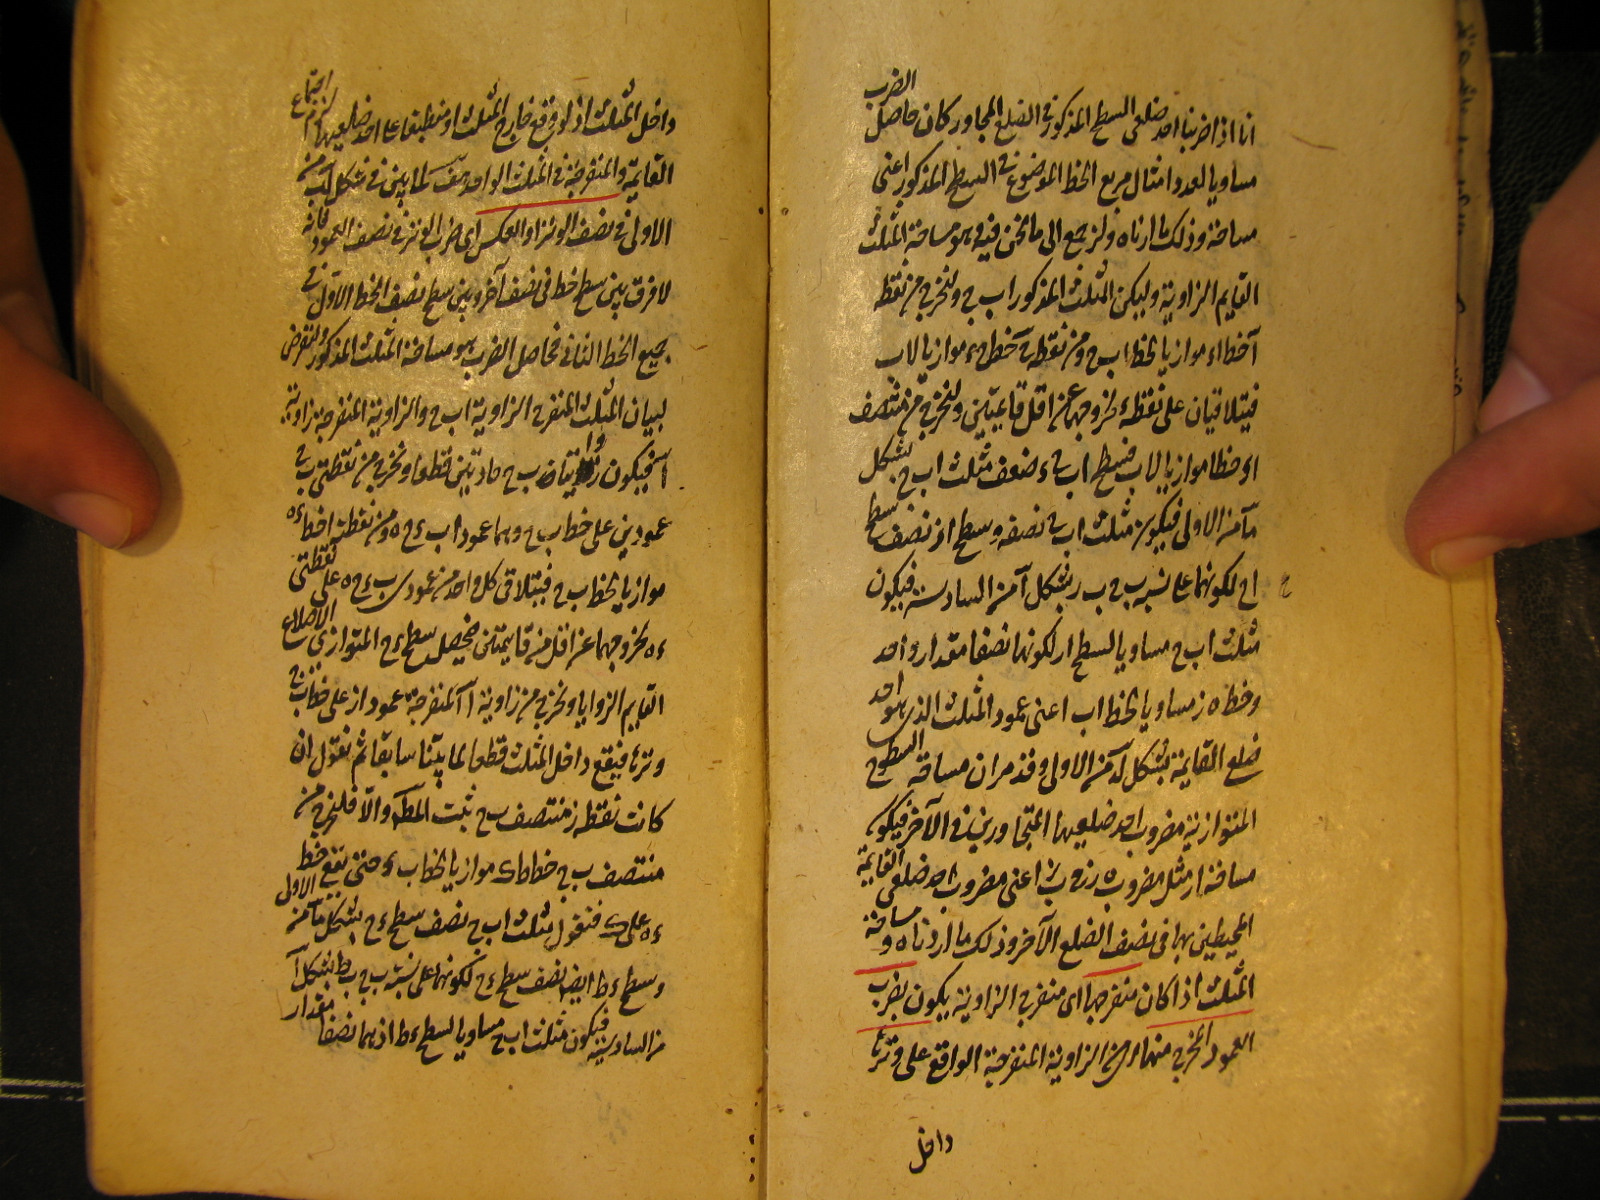 انا اذا ضربنا احد ضلعى السطح المذكور فى الضلع المجاور كان حاصل الضرب
مساويا لعدد امثال مربع الخط الموضوع فى السطح المذكور اعنى
مساحته وذلك ما اردناه ولنرجع الى ما نحن فيه وهو مساحة المثلث
القايم الزاوية وليكن المثلث المذكور ا ب ج ولنخرج من نقطة
آ خط ا ء موازيا لخط ب ج ومن نقطة ج خط ج ء موازيا لا ب
فيتلاقيان على نقطة ء لخروجهما عن اقل قايمتين ولنخرج من منتصف
ا ء خطا موازيا لا ب فسطح ا ب ج ء ضعف مثلث ا ب ج بشكل
ما من الاولى فيكون مثلث ا ب ج نصفه وسطح ا ز نصف سطح
ا ج لكونهما على نسبة ب ج ب ر بشكل آ من السادسة فيكون
مثلث ا ب ج مساويا لسطح ا ر لكونهما نصفا مقدار واحد
وخط ه ز مساويا لخط ا ب اعنى عمود المثلث الذى هو احد
ضلع القايمة بشكل لد من الاولى وقد مر ان مساحة السطوح
المتوازية مضروب احد ضلعيها المتجاورين فى الآخر فيكون
مساحة ا ر مثل مضروب ه ز فى ب ز اعنى مضروب احد ضلعى القايمة
المحيطين بها فى نصف الضلع الآخر وذلك ما اردناه ومساحة
المثلث اذا كان منفرجها اى منفرج الزاوية يكون بضرب
العمود المخرج منها اى من الزاوية المنفرجة الواقع على وترها
داخل
داخل المثلث اذ لو وقع خارج المثلث او منطبقا على احد ضلعيها لزم اجتماع
القايمة والمنفرجة فى المثلث الواحد هف لما بين فى شكل لب من
الاولى فى نصف الوتر او بالعكس اى ضرب الوتر فى نصف العمود فانه
لا فرق بين سطح خط فى نصف آخر وبين سطح نصف الخط الاول فى
جميع الخط الثانى فحاصل الضرب هو مساحة المثلث المذكور ولنفرض
لبيان المثلث المنفرج الزاوية ا ب ج والزاوية المنفرجة زاوية
آ فيكون زاويتا ب ج حادتين قطعا ونخرج من نقطتى ب ج
عمودين على خط ب ج وهما عمودا ب ء ج ه ومن نقطة ا خط ء ه
موازيا لخط ب ج فيتلاقى كل واحد من عمودى ب ء ج ه على نقطتى
ء ه لخروجهما عن اقل من قايمتين فيحصل سطح ء ج المتوازى الاضلاع
القايم الزوايا ونخرج من زاوية آ المنفرجة عمود ا ز على خط ب ج
وترها فيقع داخل المثلث قطعا لما بينا سابقا ثم نقول ان
كانت نقطة ز منتصف ب ج ثبت المط والا فلنخرج من
منتصف ب ج خط ط ك موازيا لخط ب ء حتى يقع خط
ء ه على ك فنقول مثلث ا ب ج نصف سطح ء ج بشكل ما من الاولى
وسطح ء ط ايضا نصف سطح ء ج لكونهما على نسبة ب ج ب ط بشكل آ
من السادسة فيكون مثلث ا ب ج مساويا لسطح ء ط اذ هما نصفا مقدار